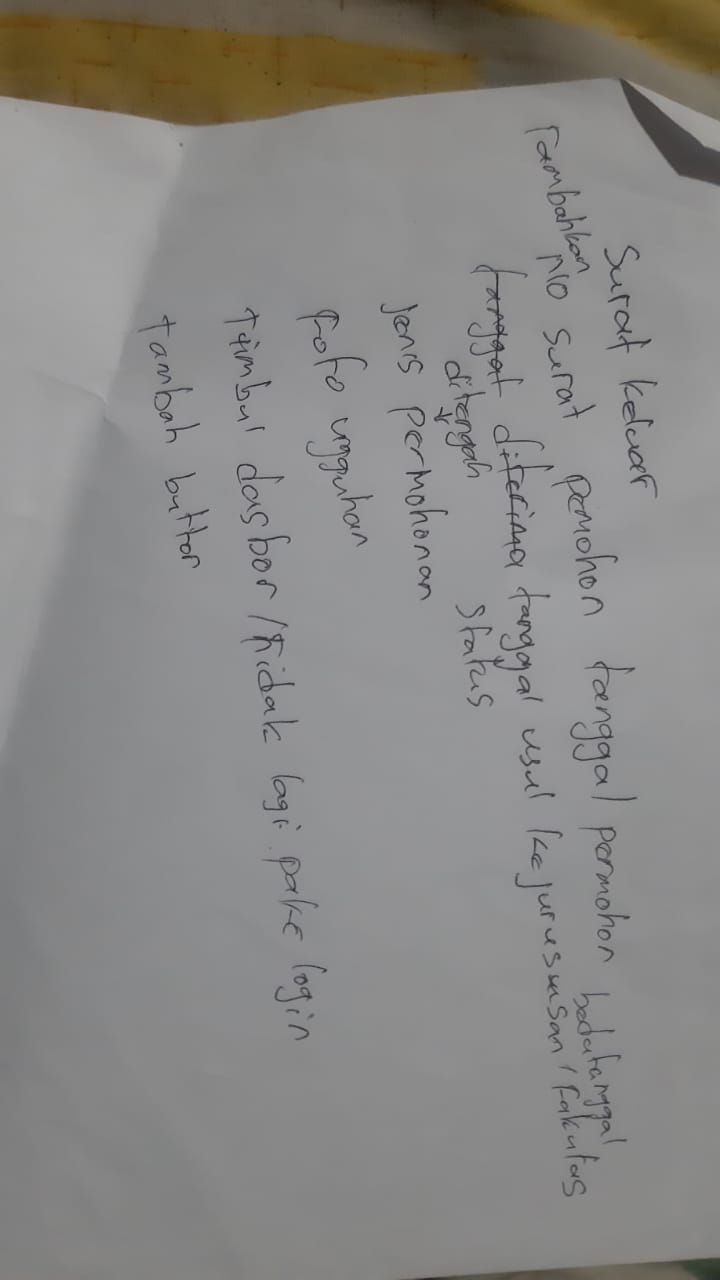 Surat Keluar
Tambahkan
No Surat pemohon tanggal permohon bedatanggal
tanggal diterima tanggal usul kejurususan/Fakultas
ditengah status
Jenis permohonan
Foto ungguhan
timbul dasbor/tidak lagi pake login
tambah button